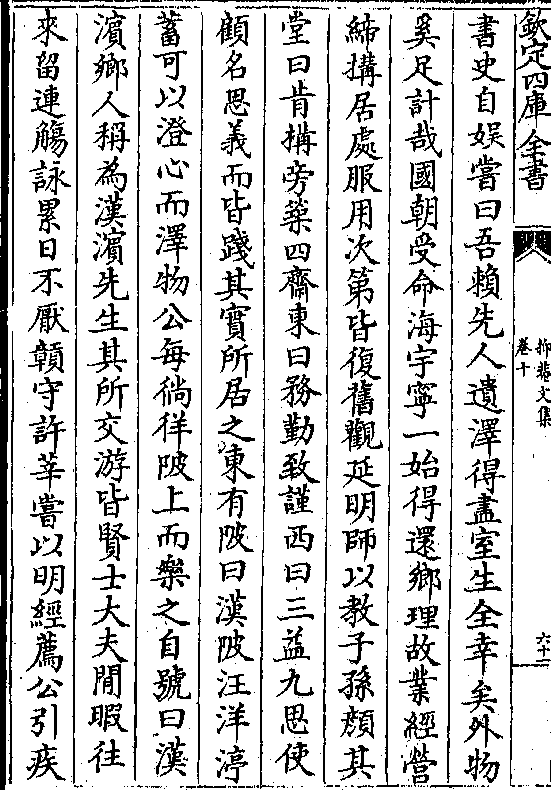 欽定四庫全書
抑菴文集
卷十
六十二
書史自娱嘗曰吾賴先人遺澤得盡室生全幸矣外物
奚足計哉國朝受命海宇寧一始得還鄉理故業經營
締搆居處服用次第皆復舊觀延明師以教子孫顔其
堂曰肯搆旁築四齋東曰務勤致謹西曰三益九思使
顧名思義而皆踐其實所居之東有陂曰漢陂汪洋渟
蓄可以澄心而澤物公每徜徉陂上而樂之自號曰漢
濵鄉人稱為漢濵先生其所交游皆賢士大夫間暇往
來留連觴詠累日不厭贑守許莘嘗以明經薦公引疾